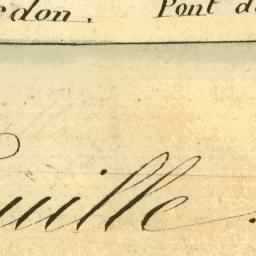 edon. Pont d
uille.